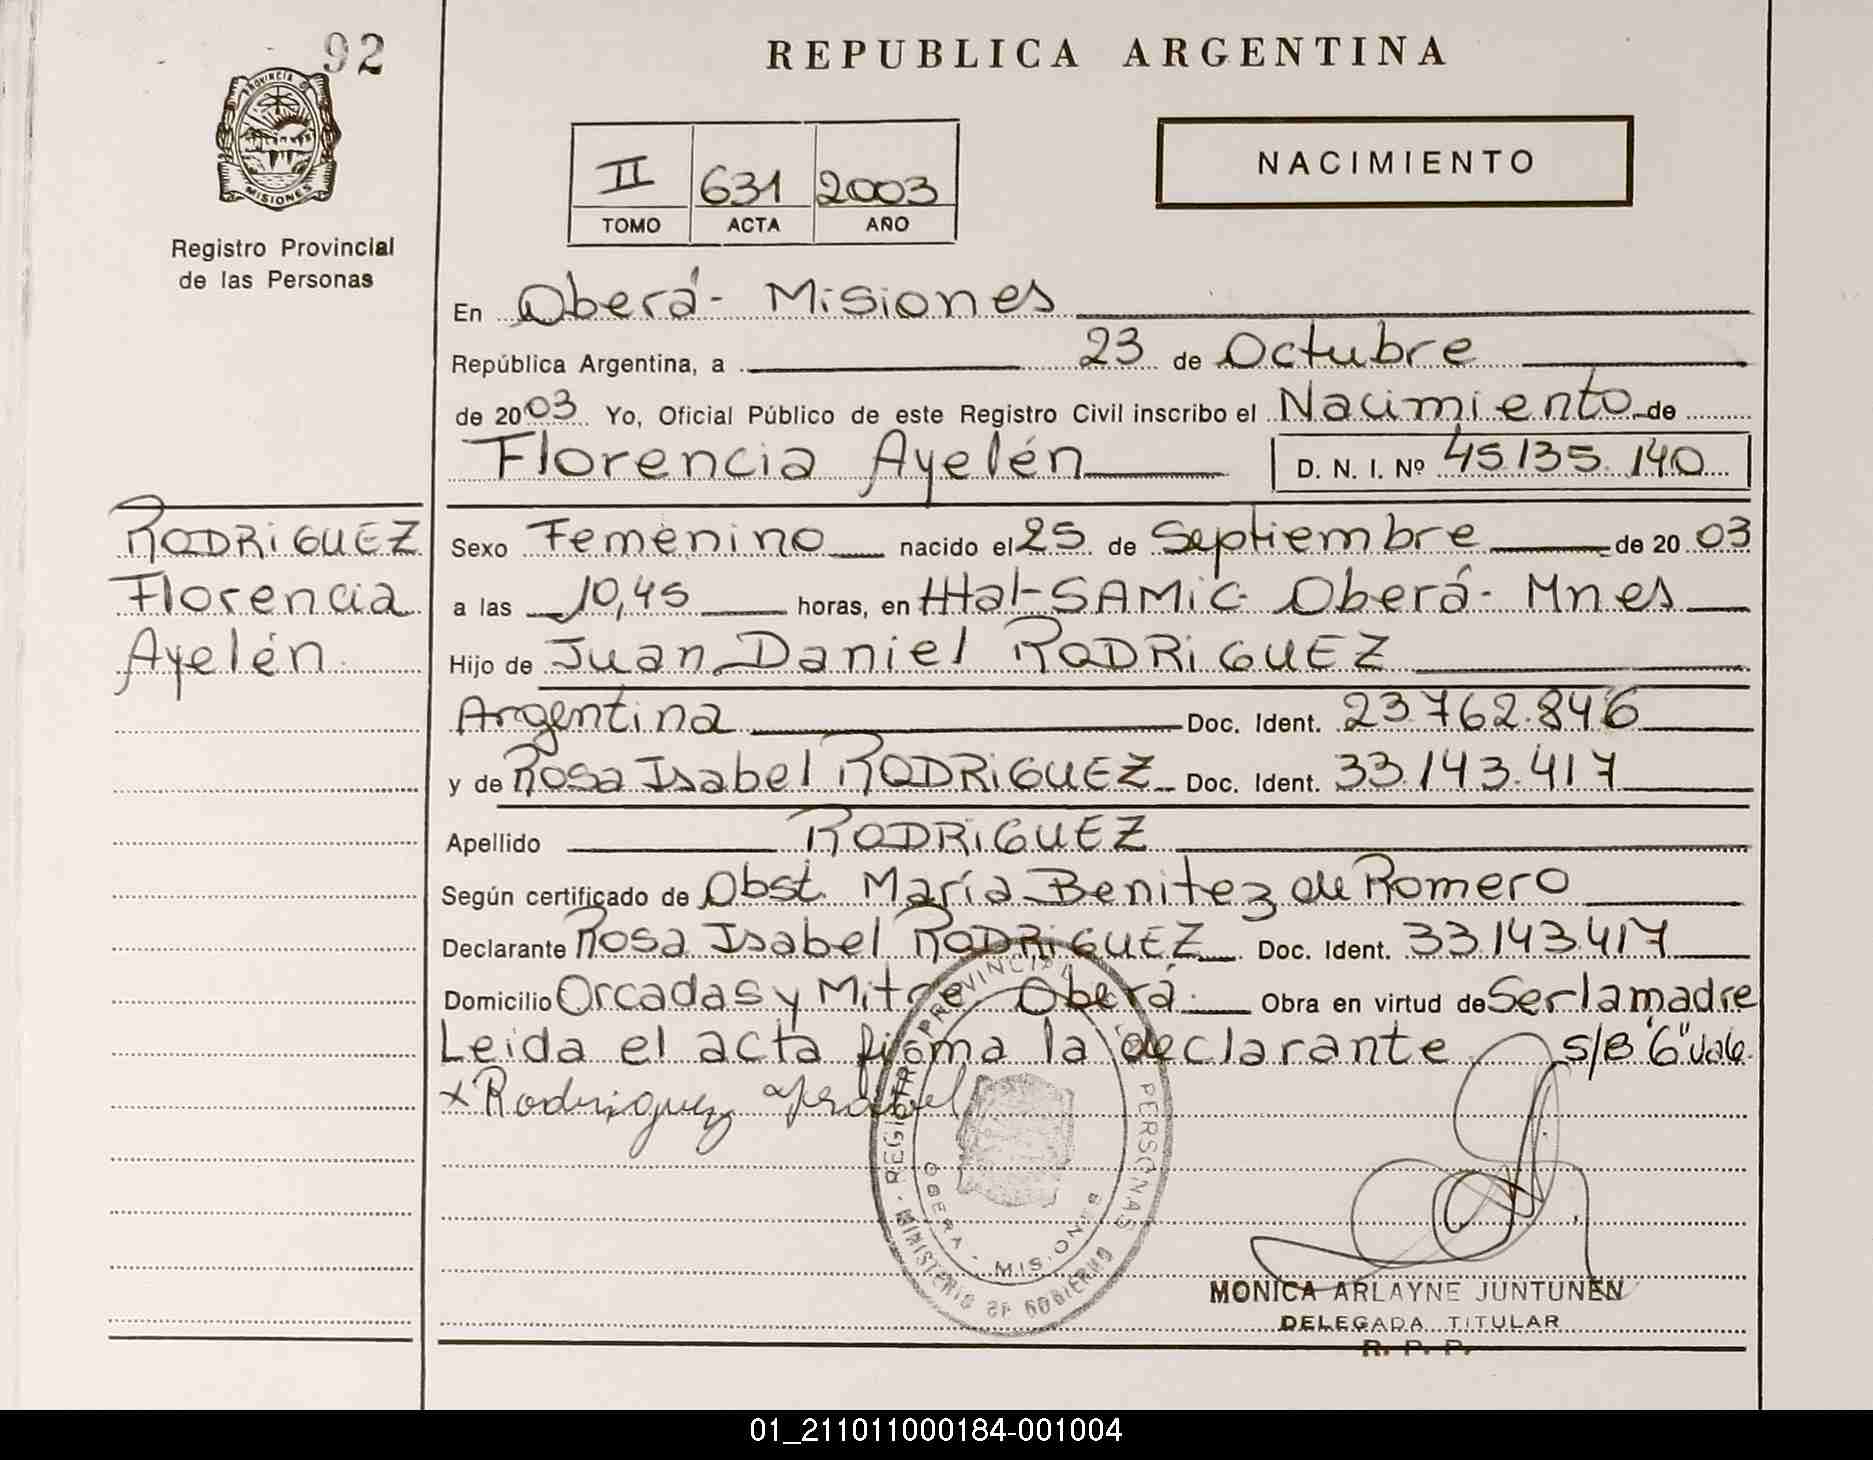 92
REPUBLICA ARGENTINA
PROVINCIA DE
MISIONES
Registro Provincial
de las Personas
II 631 2003
TOMO ACTA AÑO
NACIMIENTO
En Oberá- Misiones
República Argentina, a 23 de Octubre
de 2003 Yo, Oficial Público de este Registro Civil inscribo el Nacimiento de
Florencia Ayelén D. N. I. Nº 45.135.140
RODRiGUEZ
Florencia
Ayelén
Sexo Femenino nacido el 25 de Septiembre de 2003
a las 10,45 horas, en Htal-SAMiC- Oberá- Mnes
Hijo de Juan Daniel RODRiGUEZ
Argentina Doc. Ident. 23.762.846
y de Rosa Isabel RODRiGUEZ Doc. Ident. 33.143.417
Apellido RODRiGUEZ
Según certificado de Obst. María Benitez de Romero
Declarante Rosa Isabel RODRiGUEZ Doc. Ident. 33.143.417
Domicilio Orcadas y Mitre Oberá. Obra en virtud de Ser la madre
Leida el acta firma la declarante S/B "6" vale.
x Rodriguez Isabel
REGISTRO PROVINCIAL DE LAS PERSONAS
MINISTERIO DE GOBIERNO
OBERA - MISIONES
MONICA ARLAYNE JUNTUNEN
DELEGADA TITULAR
R. P. P.
01_211011000184-001004